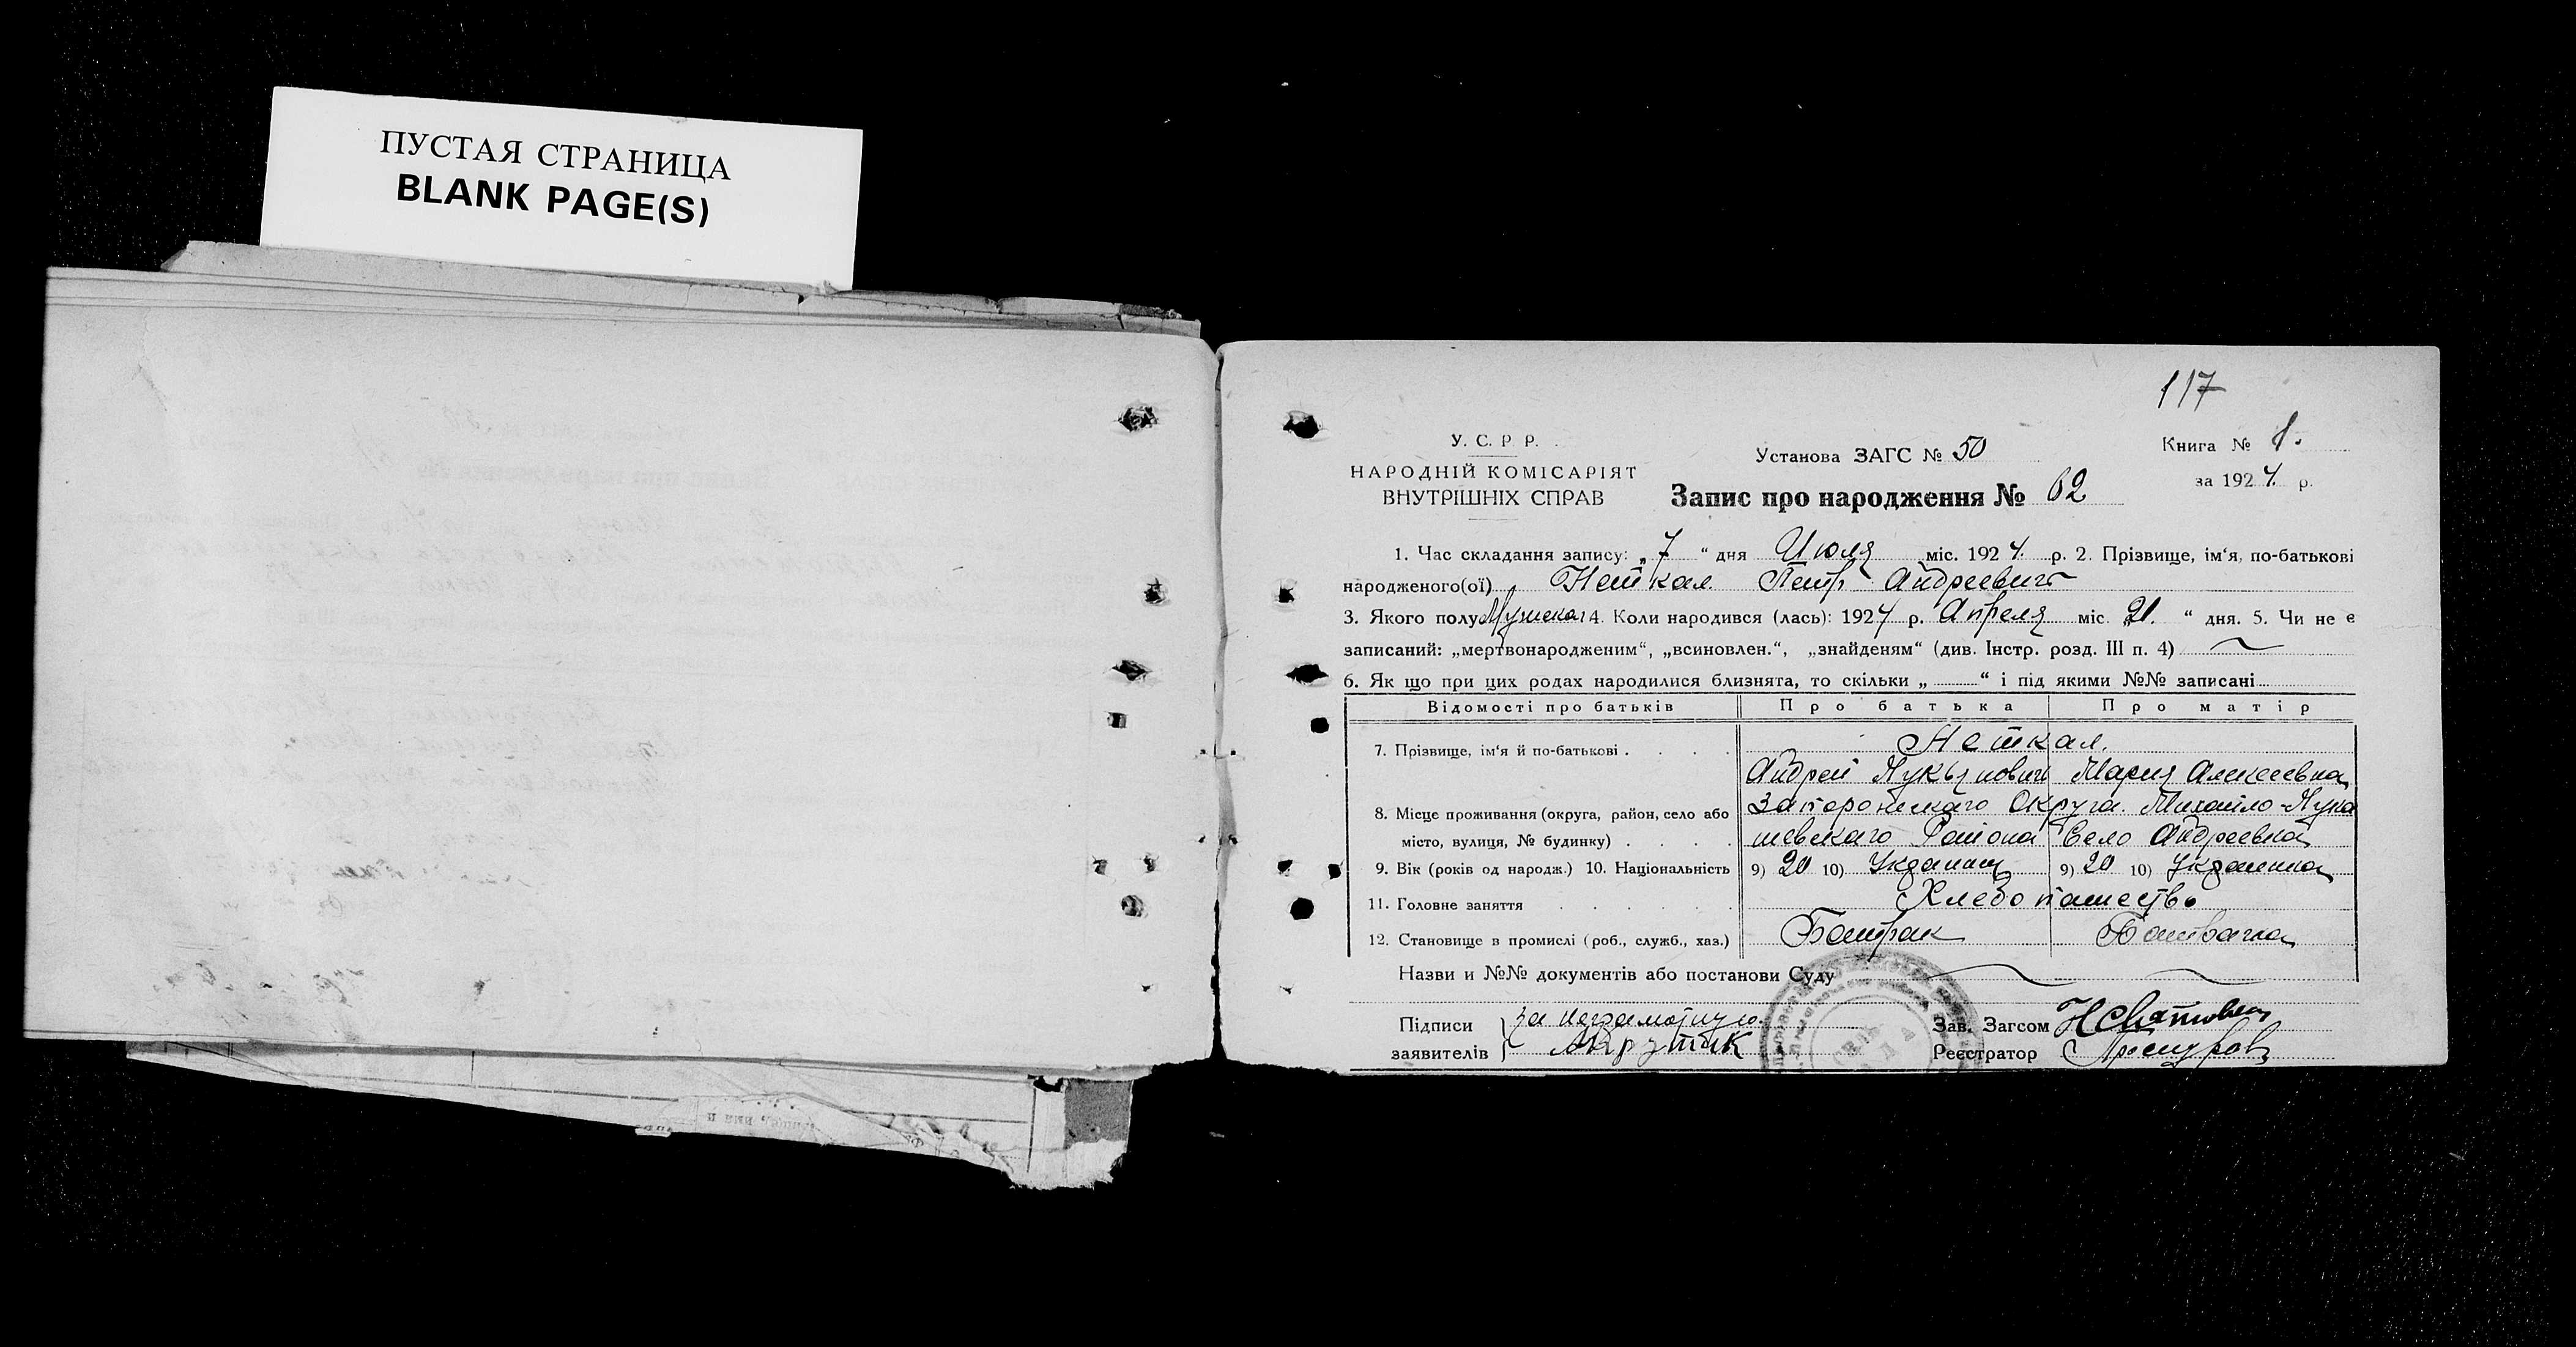 ПУСТАЯ СТРАНИЦА
BLANK PAGE(S)
117
У. С. Р Р.
НАРОДНІЙ КОМІСАРІЯТ
ВНУТРІШНІХ СПРАВ
Установа ЗАГС № 50
Запис про народження № 62
Книга № 1.
за 1924 р.
1. Час складання запису: „7“ дня Июля міс. 1924 р. 2. Прізвище, ім‘я, по-батькові
народженого(ої) Неткал Петр Андреевич
3. Якого полу Мужскаг 4. Коли народився (лась): 1924 р. Апреля міс. 21. “ дня. 5. Чи не є
записаний: „мертвонародженим“, „всиновлен.“, „знайденям“ (див. Інстр. розд. III п. 4)
6. Як що при цих родах народилися близнята, то скільки „ “ і під якими №№ записані
Відомості про батьків Про батька Про матір
7. Прізвище, ім‘я й по-батькові . . . . Неткал.
Андрей Лукьянович Мария Алексеевна
8. Місце проживання (округа, район, село або Запорожскаго Округа. Михайло-Лука
місто, вулиця, № будинку) . . . . шевскаго Района Село Андреевка
9. Вік (років од народж.) 10. Національність 9) 20 10) Украинец 9) 20 10) Украинка
11. Головне заняття . . . . . Хлебопашество
12. Становище в промислі (роб., служб., хаз.) Батрак Батрачка
Назви и №№ документів або постанови Суду
Підписи заявителів за неграмотную
Крутик
Зав. Загсом
Реєстратор